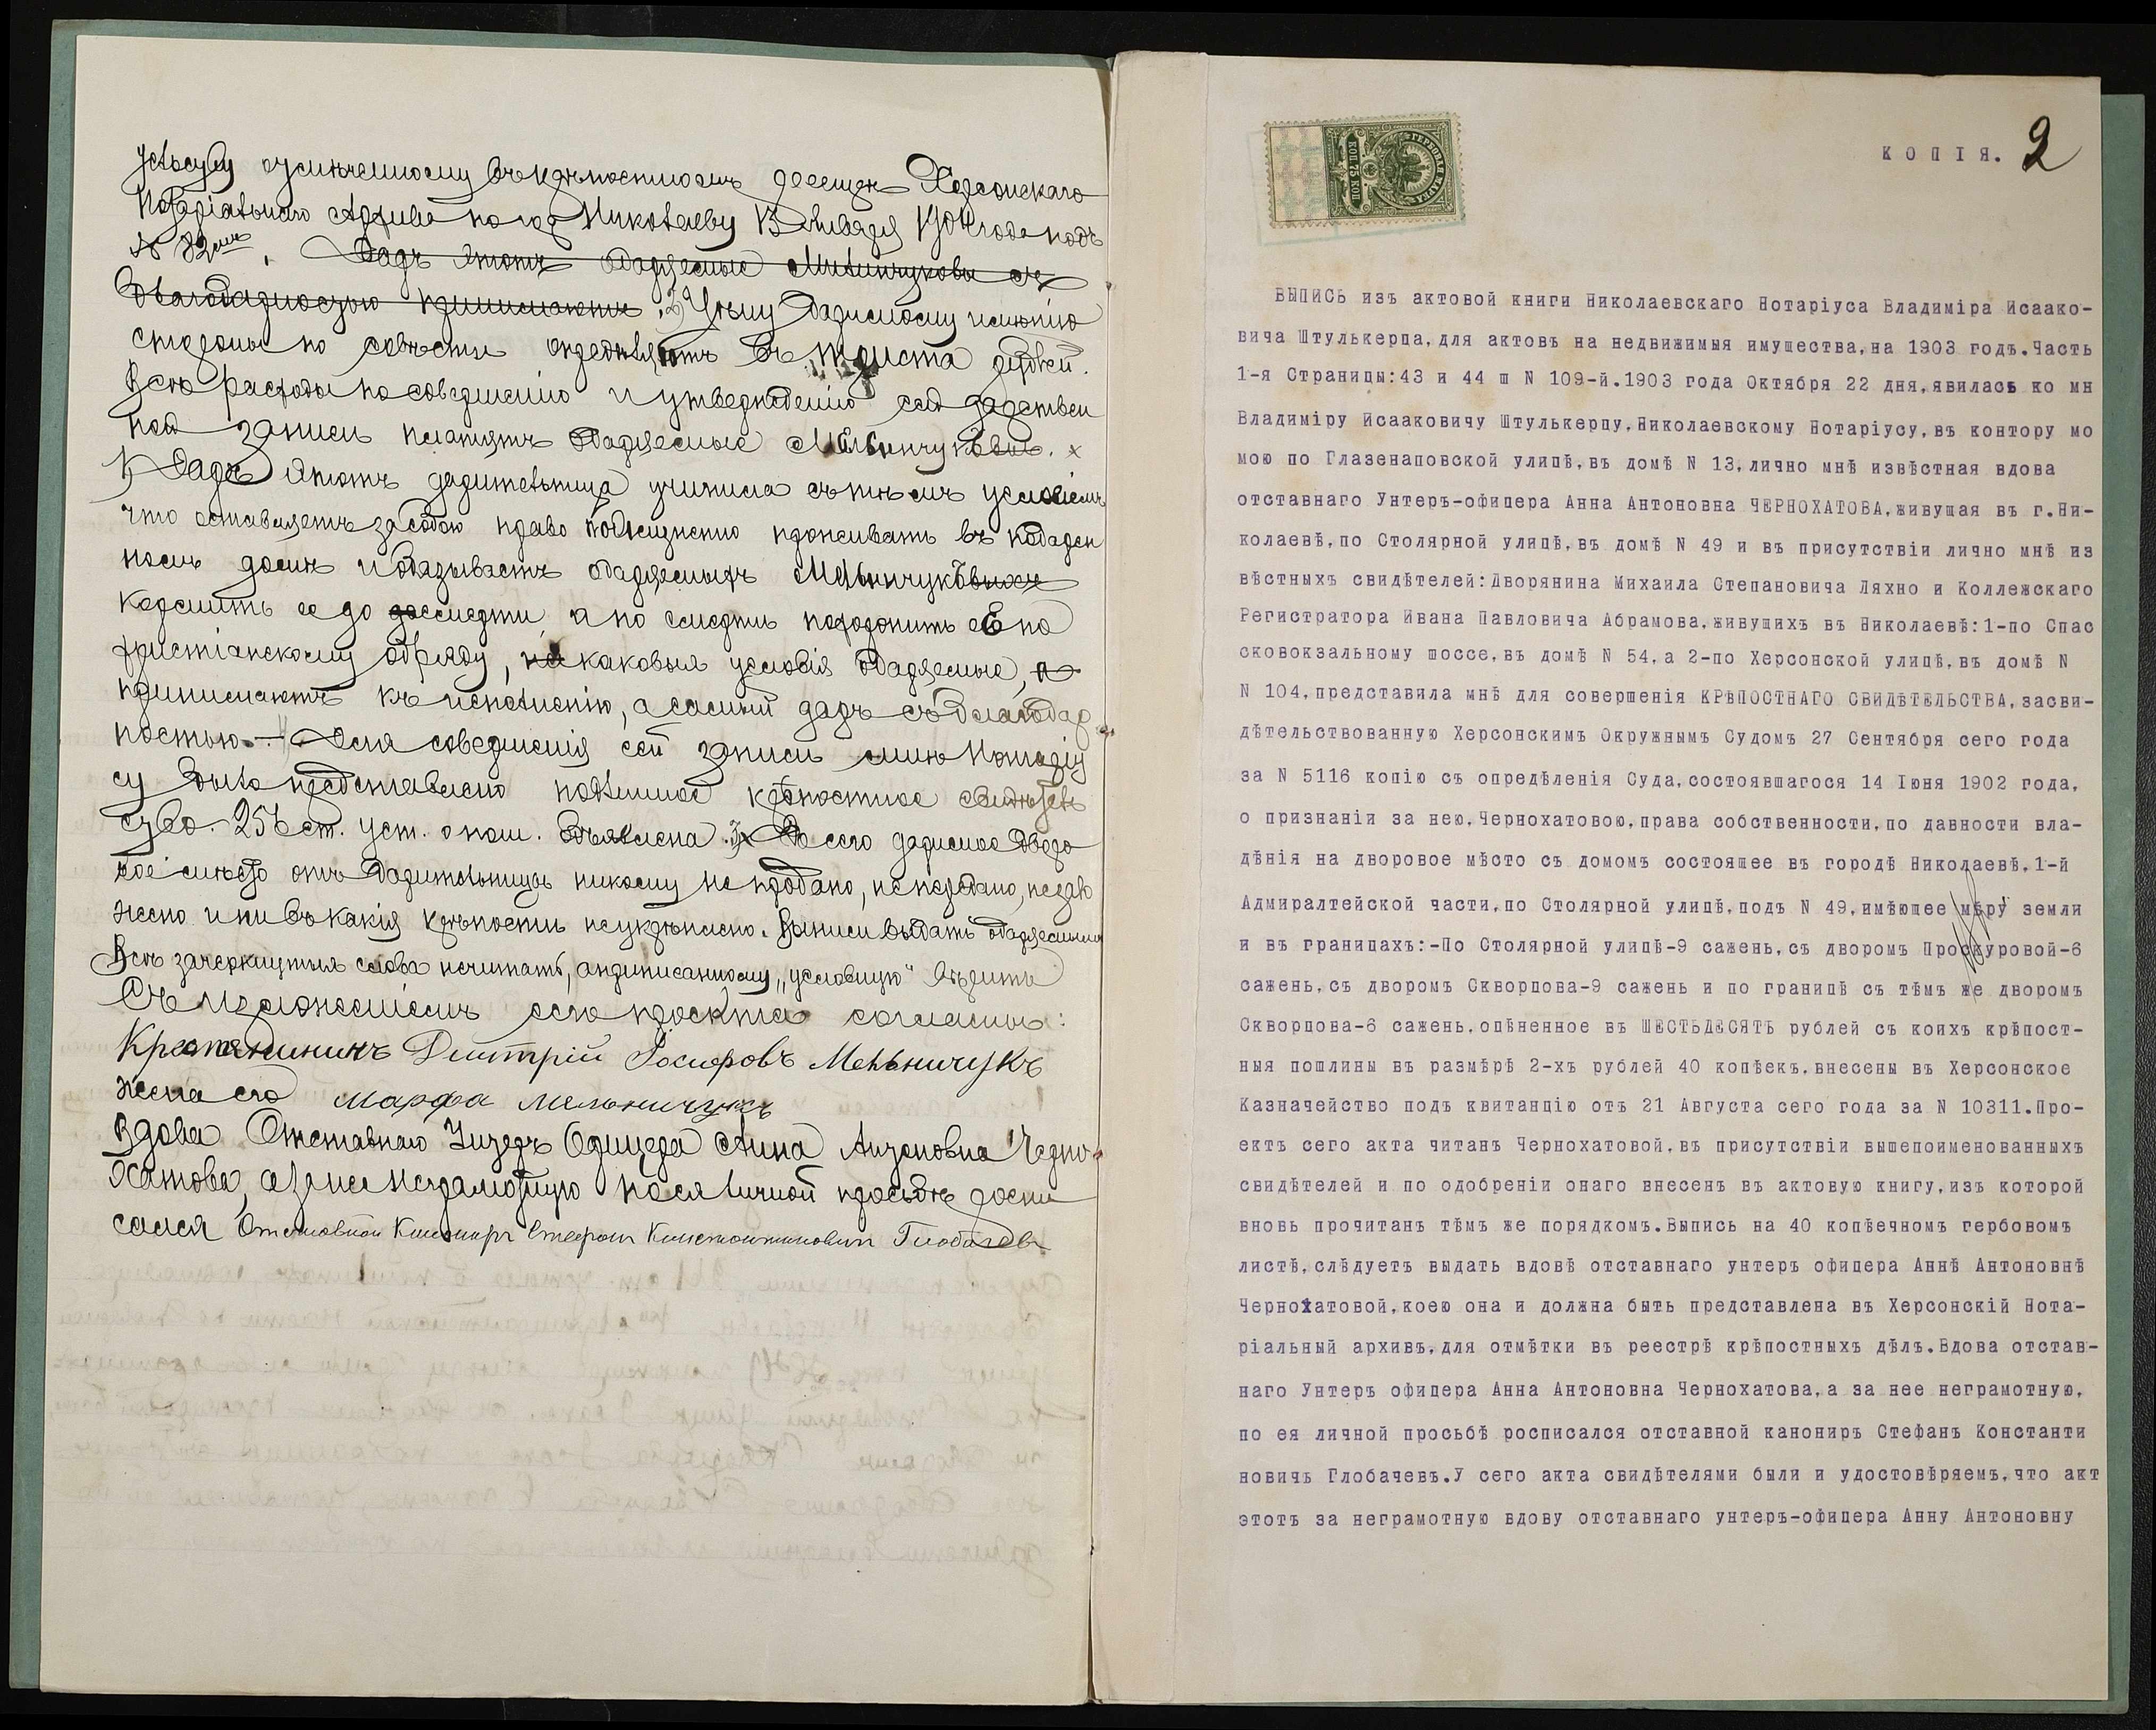 тельству отмѣченному въ крѣпостномъ реестрѣ Херсонскаго
Нотаріальнаго Архива по гор. Николаеву 13 Января 1904 года подъ
№ 82мъ. Даръ этотъ одаряемые Мельничуковы съ
благодарностью принимаютъ. 2) Цѣну даримому имѣнію
стороны по совѣсти опредѣляютъ въ триста рублей.
Всѣ расходы по совершенію и утвержденію сей дарствен
ной записи платятъ одаряемые Мельничуковы. х
Даръ этотъ дарительница учинила съ тѣмъ условіемъ
что оставляетъ за собою право пожизненно проживать въ подарен
номъ домѣ и обязываетъ одаряемыхъ Мельничуковыхъ
кормить ее до смерти, а по смерти похоронить её по
христіанскому обряду, каковыя условія одаряемые,
принимаютъ къ исполненію, а самый даръ съ благодар
ностью. — Для совершенія сей записи мнѣ Нотаріу
су было представлено подлинное крѣпостное свидѣтель
ство. 256 ст. уст. о пошл. объявлена. До сего даримое дворо
вое мѣсто отъ дарительницы никому не продано, не передано, не зало
жено и ни въ какія крѣпости не укрѣплено. Выписи выдать одаряемымъ
Всѣ зачеркнутыя слова не читать, а надписанному „условную" вѣрить
Съ изложеніемъ сего проэкта согласны:
Крестянинъ Дмитрій Іосифовъ Мельничукъ
жена его Марфа Мельничукъ
Вдова Отставнаго Унтеръ Офицера Анна Антоновна Черно-
хатова, а за нее неграмотную по ея личной просьбѣ роспи
сался Отставной Канониръ Стефанъ Константиновичъ Глобачевъ
КОПІЯ. 2
ГЕРБОВАЯ МАРКА
КОП 75 КОП
ВЫПИСЬ изъ актовой книги Николаевскаго Нотаріуса Владиміра Исаако-
вича Штулькерца,для актовъ на недвижимыя имущества,на 1903 годъ.Часть
1-я Страницы:43 и 44 ш N 109-й.1903 года Октября 22 дня,явилась ко мн
Владиміру Исааковичу Штулькерцу,Николаевскому Нотаріусу,въ контору мо
мою по Глазенаповской улицѣ,въ домѣ N 13,лично мнѣ извѣстная вдова
отставнаго Унтеръ-офицера Анна Антоновна ЧЕРНОХАТОВА,живущая въ г.Ни-
колаевѣ,по Столярной улицѣ,въ домѣ N 49 и въ присутствіи лично мнѣ из
вѣстныхъ свидѣтелей:Дворянина Михаила Степановича Ляхно и Коллежскаго
Регистратора Ивана Павловича Абрамова,живущихъ въ Николаевѣ:1-по Спас
сковокзальному шоссе,въ домѣ N 54,а 2-по Херсонской улицѣ,въ домѣ N
N 104,представила мнѣ для совершенія КРѢПОСТНАГО СВИДѢТЕЛЬСТВА,засви-
дѣтельствованную Херсонскимъ Окружнымъ Судомъ 27 Сентября сего года
за N 5116 копію съ опредѣленія Суда,состоявшагося 14 Іюня 1902 года,
о признаніи за нею,Чернохатовою,права собственности,по давности вла-
дѣнія на дворовое мѣсто съ домомъ состоящее въ городѣ Николаевѣ,1-й
Адмиралтейской части,по Столярной улицѣ,подъ N 49,имѣющее мѣру земли
и въ границахъ:-По Столярной улицѣ-9 сажень,съ дворомъ Проскуровой-6
сажень,съ дворомъ Скворцова-9 сажень и по границѣ съ тѣмъ же дворомъ
Скворцова-6 сажень,оцѣненное въ ШЕСТЬДЕСЯТЬ рублей съ коихъ крѣпост-
ныя пошлины въ размѣрѣ 2-хъ рублей 40 копѣекъ,внесены въ Херсонское
Казначейство подъ квитанцію отъ 21 Августа сего года за N 10311.Про-
ектъ сего акта читанъ Чернохатовой,въ присутствіи вышепоименованныхъ
свидѣтелей и по одобреніи онаго внесенъ въ актовую книгу,изъ которой
вновь прочитанъ тѣмъ же порядкомъ.Выпись на 40 копѣечномъ гербовомъ
листѣ,слѣдуетъ выдать вдовѣ отставнаго унтеръ офицера Аннѣ Антоновнѣ
Чернохатовой,коею она и должна быть представлена въ Херсонскій Нота-
ріальный архивъ,для отмѣтки въ реестрѣ крѣпостныхъ дѣлъ.Вдова отстав-
наго Унтеръ офицера Анна Антоновна Чернохатова,а за нее неграмотную,
по ея личной просьбѣ росписался отставной канониръ Стефанъ Константи
новичъ Глобачевъ.У сего акта свидѣтелями были и удостовѣряемъ,что акт
этотъ за неграмотную вдову отставнаго унтеръ-офицера Анну Антоновну